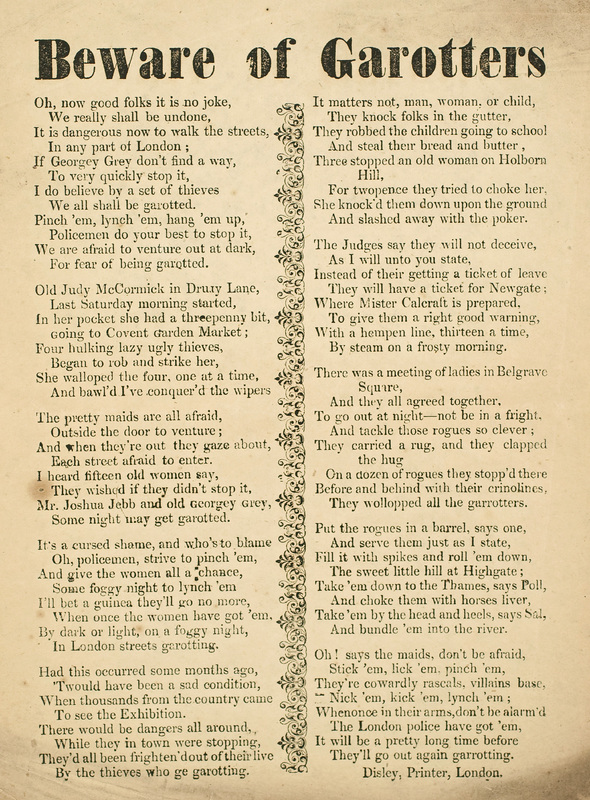 Beware of Garotters
Oh, now good folks it is no joke,
We really shall be undone,
It is dangerous now to walk the streets,
In any part of London ;
If Georgey Grey don't find a way,
To very quickly stop it,
I do believe by a set of thieves
We all shall be garotted.
Pinch 'em, lynch 'em, hang 'em up,
Policemen do your best to stop it,
We are afraid to venture out at dark,
For fear of being garotted.
Old Judy McCormick in Drury Lane,
Last Saturday morning started,
In her pocket she had a threepenny bit,
going to Covent Garden Market ;
Four hulking lazy ugly thieves,
Began to rob and strike her,
She walloped the four, one at a time,
And bawl'd I've conquer'd the wipers
The pretty maids are all afraid,
Outside the door to venture ;
And when they're out they gaze about,
Each street afraid to enter.
I heard fifteen old women say,
They wished if they didn't stop it,
Mr. Joshua Jebb and old Georgey Grey,
Some night may get garotted.
It's a cursed shame, and who's to blame
Oh, policemen, strive to pinch 'em,
And give the women all a chance,
Some foggy night to lynch 'em
I'll bet a guinea they'll go no more,
When once the women have got 'em,
By dark or light, on a foggy night,
In London streets garotting.
Had this occurred some months ago,
'Twould have been a sad condition,
When thousands from the country came
To see the Exhibition.
There would be dangers all around,
While they in town were stopping,
They'd all been frighten'd out of their live
By the thieves who ge garotting.
It matters not, man, woman, or child,
They knock folks in the gutter,
They robbed the children going to school
And steal their bread and butter ,
Three stopped an old woman on Holborn
Hill,
For twopence they tried to choke her,
She knock'd them down upon the ground
And slashed away with the poker.
The Judges say they will not deceive,
As I will unto you state,
Instead of their getting a ticket of leave
They will have a ticket for Newgate ;
Where Mister Calcraft is prepared,
To give them a right good warning,
With a hempen line, thirteen a time,
By steam on a frosty morning.
There was a meeting of ladies in Belgrave
Square,
And they all agreed together,
To go out at night—not be in a fright,
And tackle those rogues so clever ;
They carried a rug, and they clapped
the hug
On a dozen of rogues they stopp'd there
Before and behind with their crinolines,
They wollopped all the garrotters.
Put the rogues in a barrel, says one,
And serve them just as I state,
Fill it with spikes and roll 'em down,
The sweet little hill at Highgate ;
Take 'em down to the Thames, says Poll,
And choke them with horses liver,
Take 'em by the head and heels, says Sal,
And bundle 'em into the river.
Oh! says the maids, don't be afraid,
Stick 'em, lick 'em, pinch 'em,
They're cowardly rascals, villains base,
Nick 'em, kick 'em, lynch 'em ;
When once in their arms, don't be alarm'd
The London police have got 'em,
It will be a pretty long time before
They'll go out again garrotting.
Disley, Printer, London.